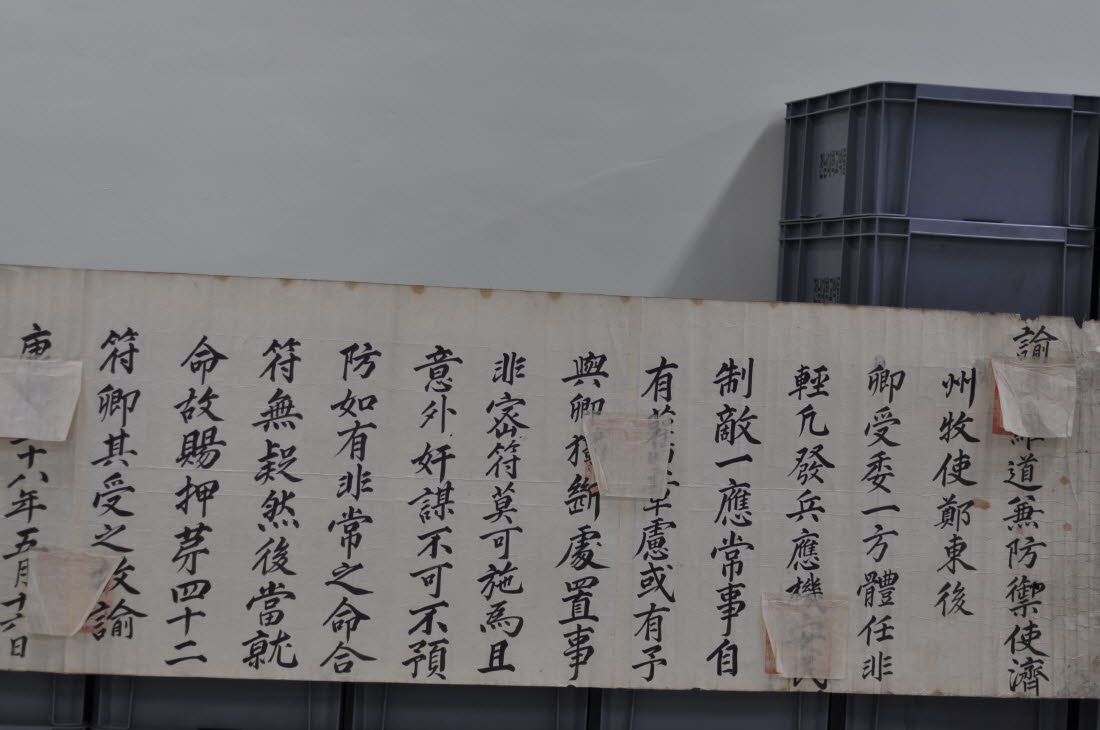 諭道兼防禦使濟
州牧使鄭東後
卿受委一方體任非
輕凢發兵應機
制敵一應常事自
有慮或有予
與卿獨斷處置事
非密符莫可施爲且
意外奸謀不可不預
防如有非常之命合
符無疑然後當就
命故賜押苐四十二
符卿其受之故諭
十八年五月十六日